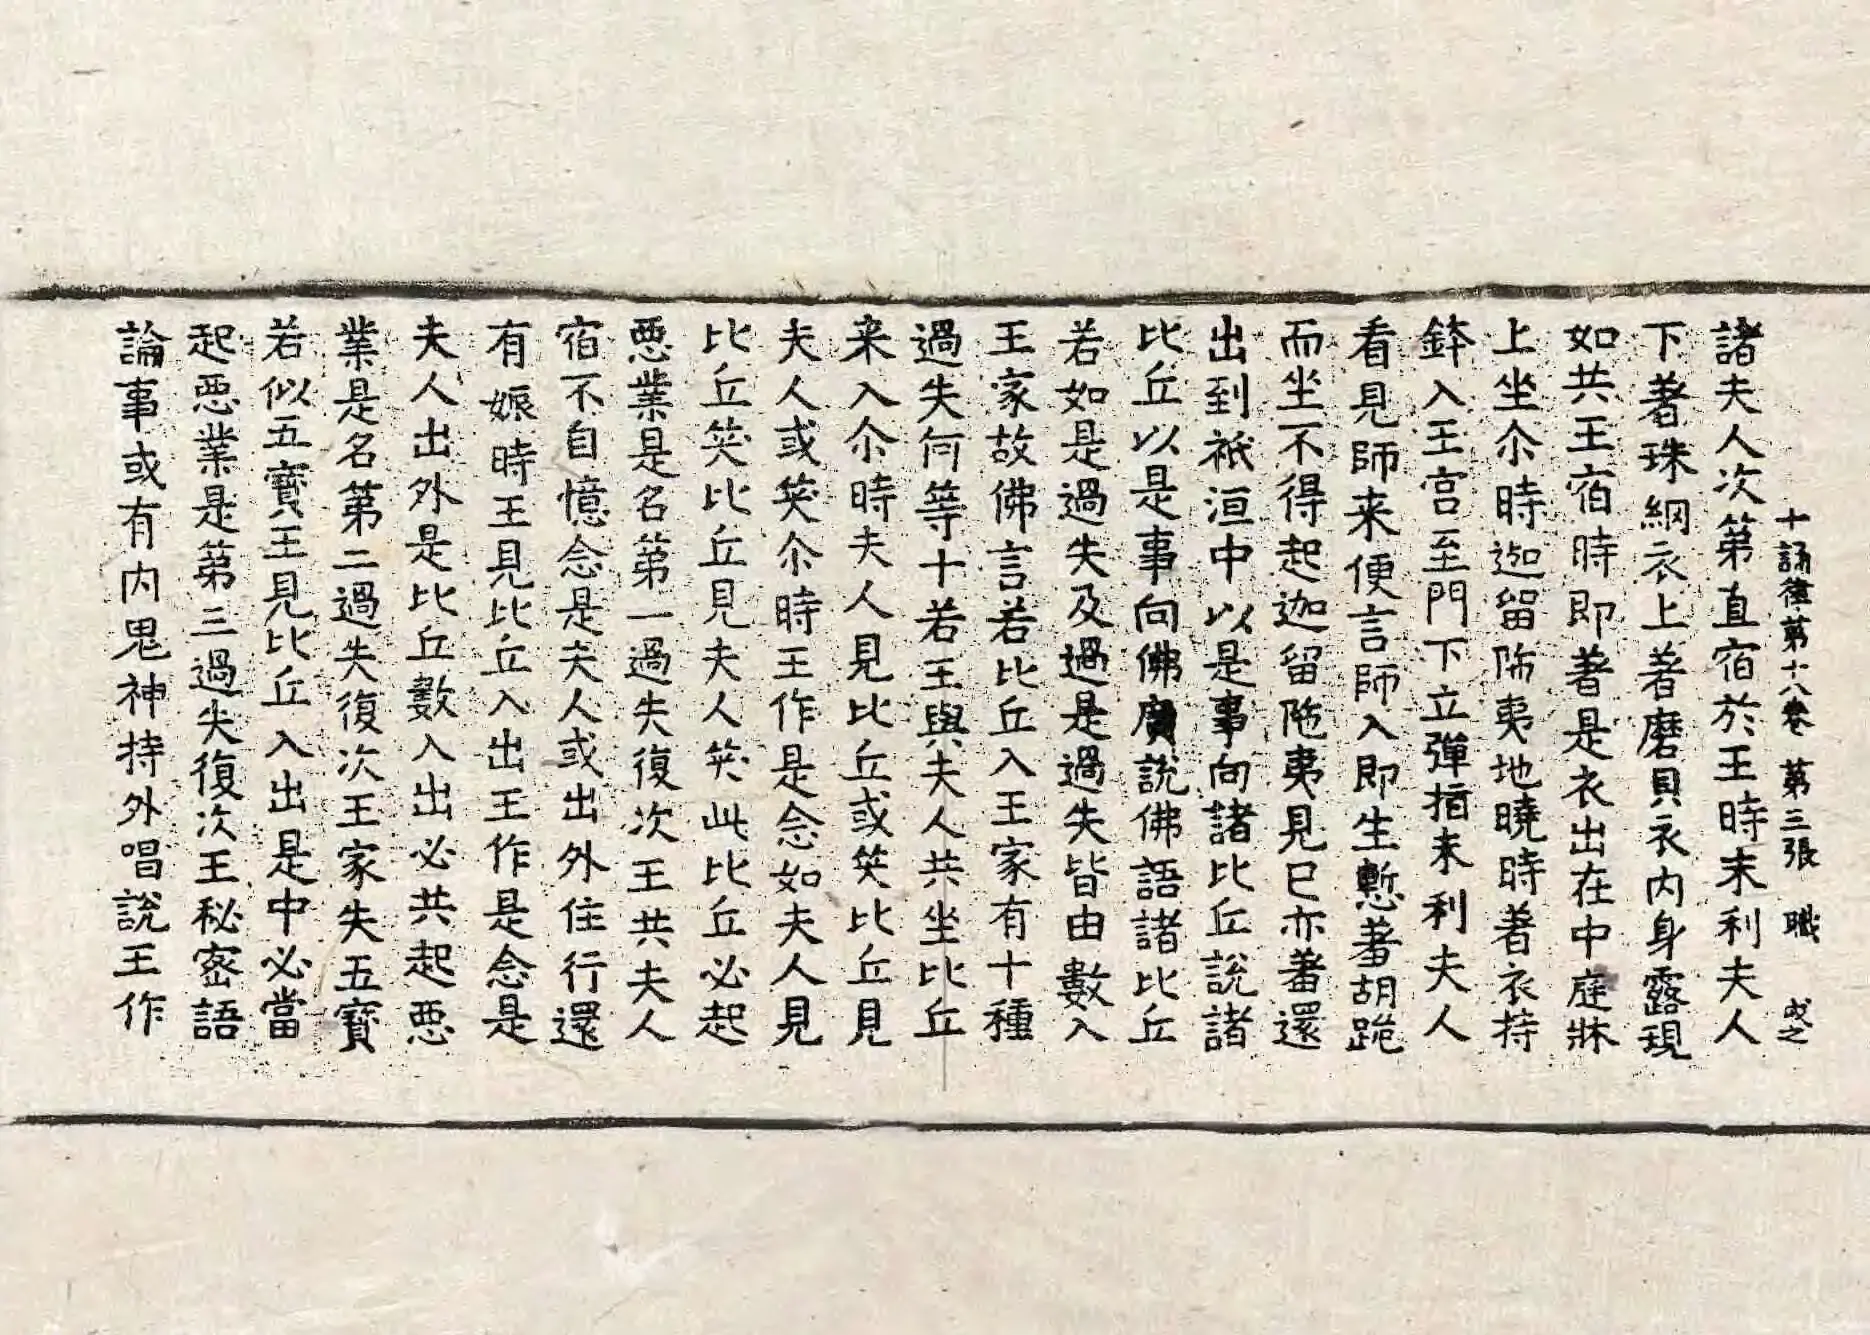 十誦律第十八卷　第三張　職　戌之
諸夫人次第直宿於王時末利夫人
下著珠網衣上著磨貝衣内身露現
如共王宿時即著是衣出在中庭牀
上坐尒時迦留陁夷地曉時著衣持
鉢入王宫至門下立彈指末利夫人
看見師来便言師入即生慙羞胡跪
而坐不得起迦留陁夷見已亦羞還
出到祇洹中以是事向諸比丘說諸
比丘以是事向佛廣說佛語諸比丘
若如是過失及過是過失皆由數入
王家故佛言若比丘入王家有十種
過失何等十若王與夫人共坐比丘
来入尒時夫人見比丘或笑比丘見
夫人或笑尒時王作是念如夫人見
比丘笑比丘見夫人笑此比丘必起
惡業是名第一過失復次王共夫人
宿不自憶念是夫人或出外住行還
有娠時王見比丘入出王作是念是
夫人出外是比丘數入出必共起惡
業是名第二過失復次王家失五寶
若似五寶王見比丘入出是中必當
起惡業是第三過失復次王秘密語
論事或有内鬼神持外唱說王作